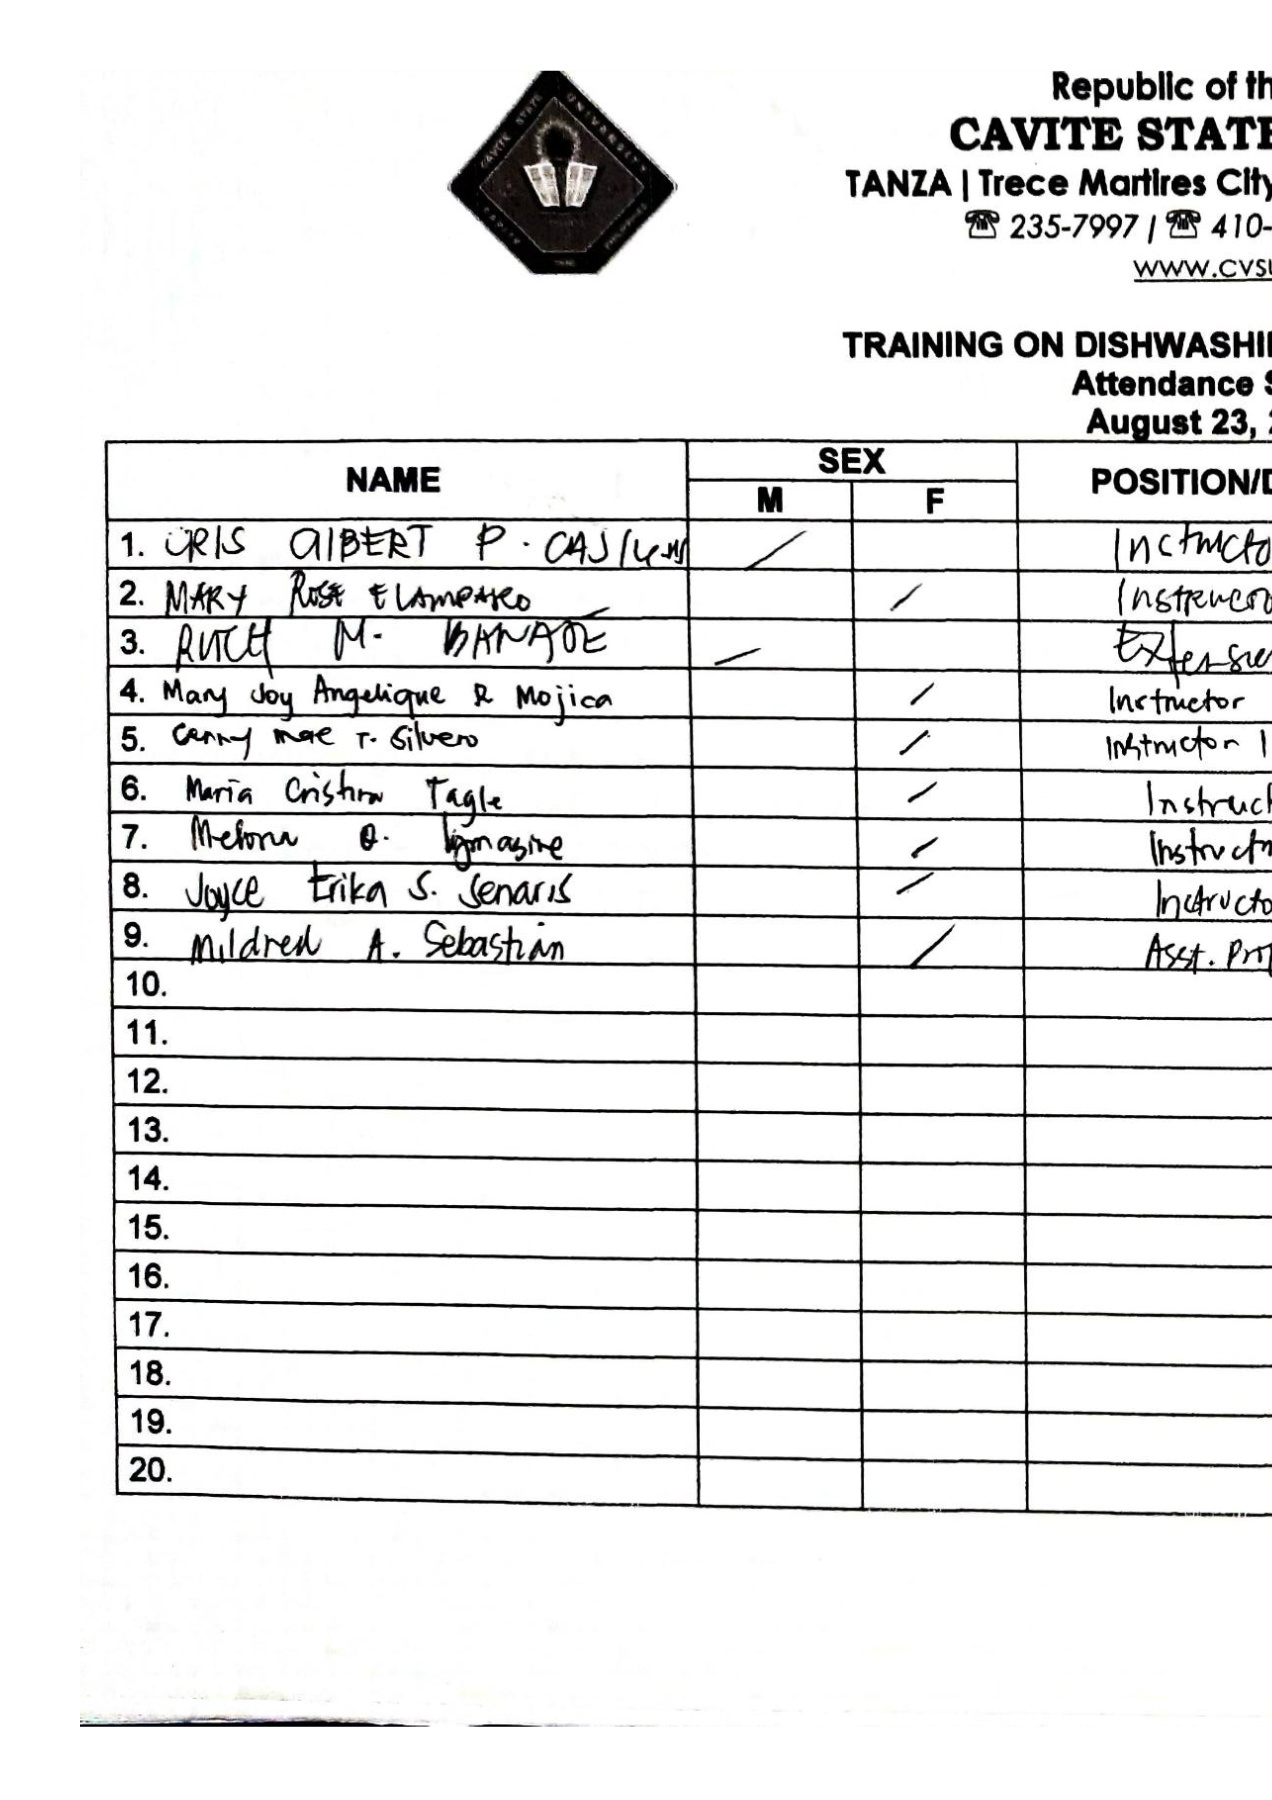 CAVITE STATE UNIVERSITY
CAVITE
PHILIPPINES
Republic of th
CAVITE STATE
TANZA | Trece Martires City
☎ 235-7997 / ☎ 410-
www.cvsu
TRAINING ON DISHWASHI
Attendance S
August 23,
NAME SEX POSITION/D
M F
1. CRIS GILBERT P. / Instructo
2. MARY ROSE ELAMPARO / Instructo
3. M. BANATE / Extension
4. Mary Joy Angelique R Mojica / Instructor
5. Canny Mae T. Silvero / Instructor I
6. Maria Cristina Tagle / Instruct
7. Q. / Instructo
8. Joyce Erika S. Senaris / Instructo
9. Mildred A. Sebastian / Asst. Prof
10.
11.
12.
13.
14.
15.
16.
17.
18.
19.
20.